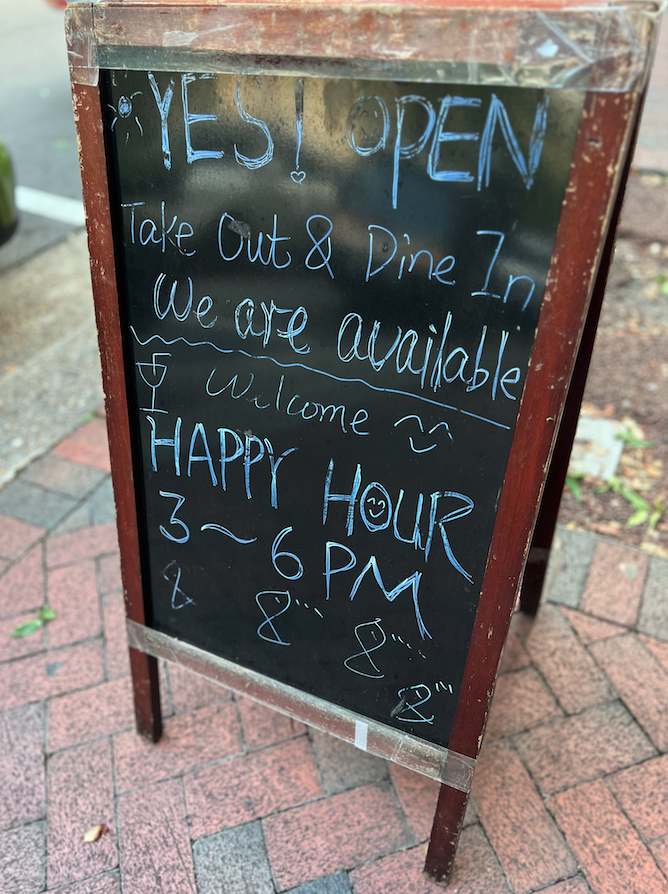 YES! OPEN
Take Out & Dine In
We are available
Welcome
HAPPY HOUR
3~6 PM